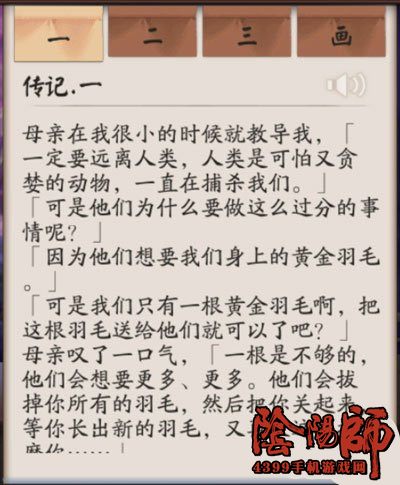 一 二 三 画
传记.一
母亲在我很小的时候就教导我，「
一定要远离人类，人类是可怕又贪
婪的动物，一直在捕杀我们。」
「可是他们为什么要做这么过分的事
情呢？」
「因为他们想要我们身上的黄金羽毛
。」
「可是我们只有一根黄金羽毛啊，把
这根羽毛送给他们就可以了吧？」
母亲叹了一口气，「一根是不够的，
他们会想要更多、更多。他们会拔
掉你所有的羽毛，然后把你关起来
等你长出新的羽毛，又
……」
陰陽師
4399手机游戏网